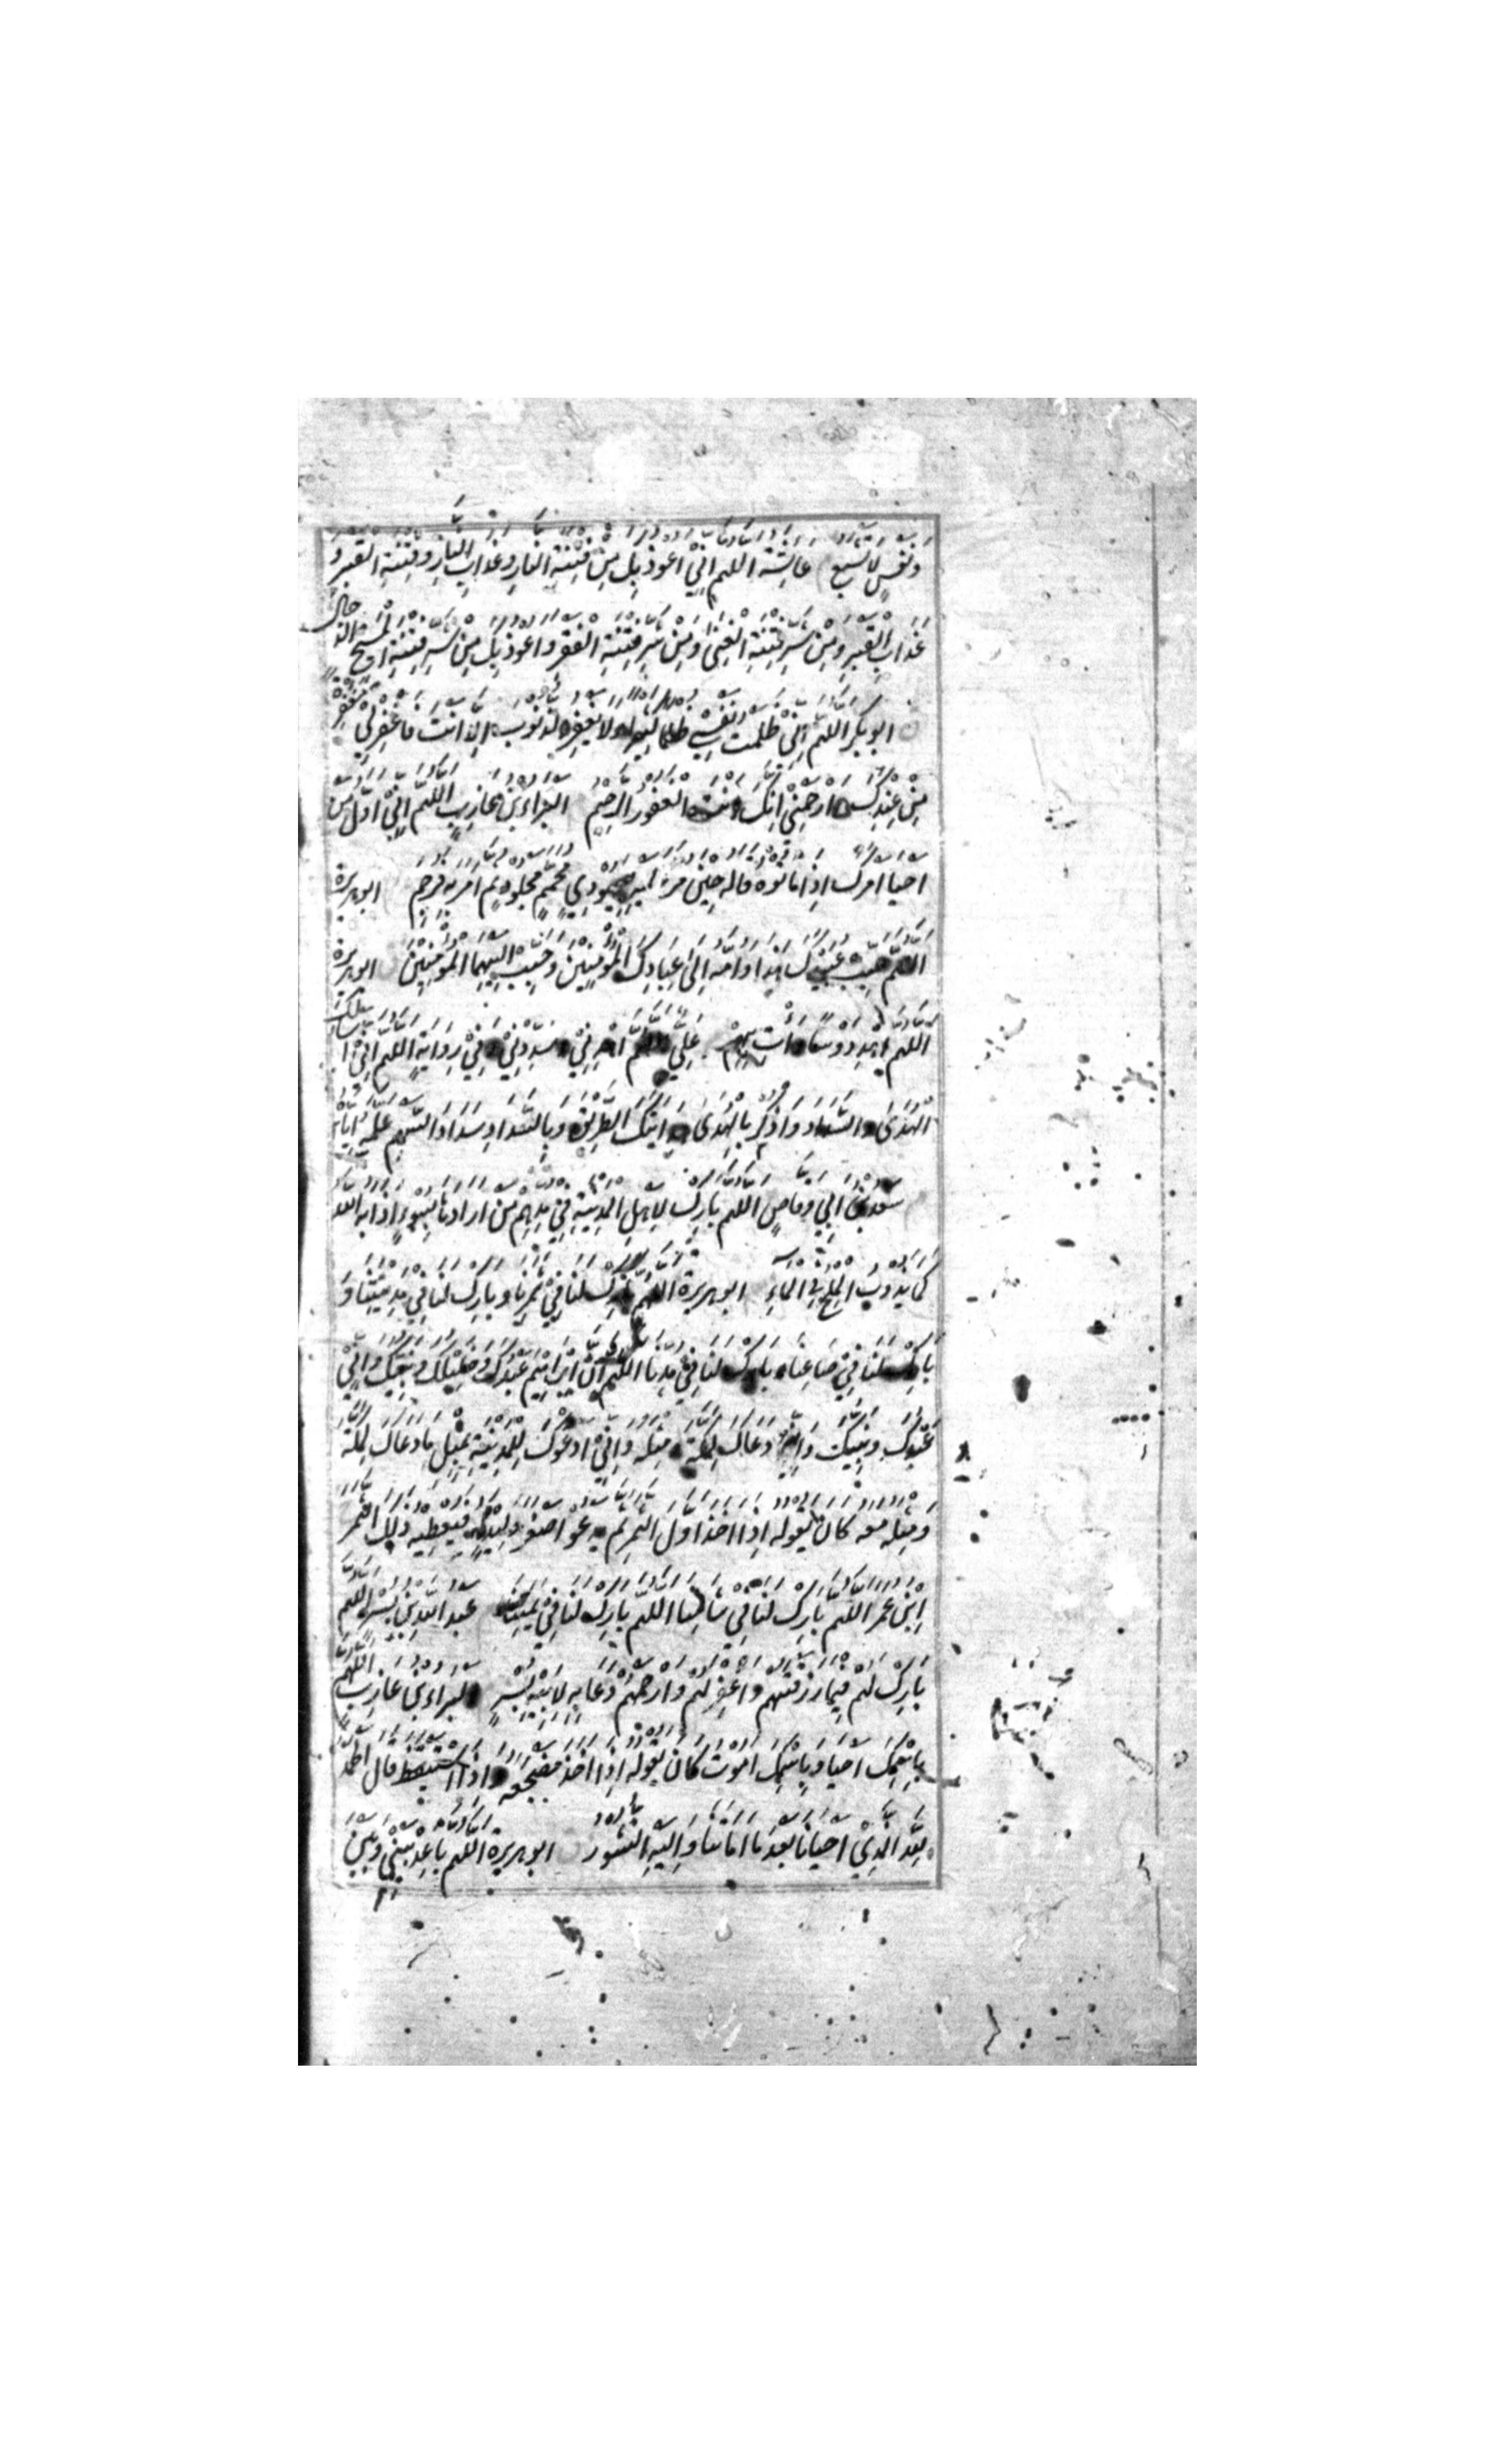 ونفس لا تشبع عائشة اللهم اني اعوذ بك من فتنة النار وعذاب النار وفتنة القبر و
عذاب القبر ومن شر فتنة الغنى ومن شر فتنة الفقر واعوذ بك من شر فتنة المسيح الدجال
ابو بكر اللهم اني ظلمت نفسي ظلما كثيرا ولا يغفر الذنوب الا انت فاغفر لي مغفرة
من عندك وارحمني انك انت الغفور الرحيم البراء بن عازب اللهم اني اول من
احيا امرك اذ اماتوه قاله حين مر يهودي محمم مجلود ثم امر به فرجم ابو هريرة
اللهم حبب عبيدك هذا وامه الى عبادك المؤمنين وحبب اليهما المؤمنين ابو هريرة
اللهم اهد دوسا وأت بهم علي اللهم اهدني وسددني وفي رواية اللهم اني اسئلك
الهدى والسداد واذكر بالهدى هدايتك الطريق وبالسداد سداد السهم علمه اياه
سعد بن ابي وقاص اللهم بارك لاهل المدينة في مدهم من ارادها بسوء اذابه الله
كما يذوب الملح في الماء ابو هريرة اللهم بارك لنا في ثمرنا وبارك لنا في مدينتنا و
بارك لنا في صاعنا وبارك لنا في مدنا اللهم ان ابراهيم عبدك وخليلك ونبيك واني
عبدك ونبيك وانه دعاك لمكة مثله واني ادعوك للمدينة بمثل ما دعاك لمكة
ومثله معه كان يقوله اذا اخذ اول الثمر ثم يدعو اصغر وليد له فيعطيه ذلك الثمر
ابن عمر اللهم بارك لنا في شامنا اللهم بارك لنا في يمننا عبد الله بن بسر اللهم
بارك لهم فيما رزقتهم واغفر لهم وارحمهم دعا به لابنه بسر البراء بن عازب اللهم
باسمك احيا وباسمك اموت كان يقوله اذا اخذ مضجعه واذا استيقظ قال الحمد
لله الذي احيانا بعد ما اماتنا واليه النشور ابو هريرة اللهم باعد بيني وبين